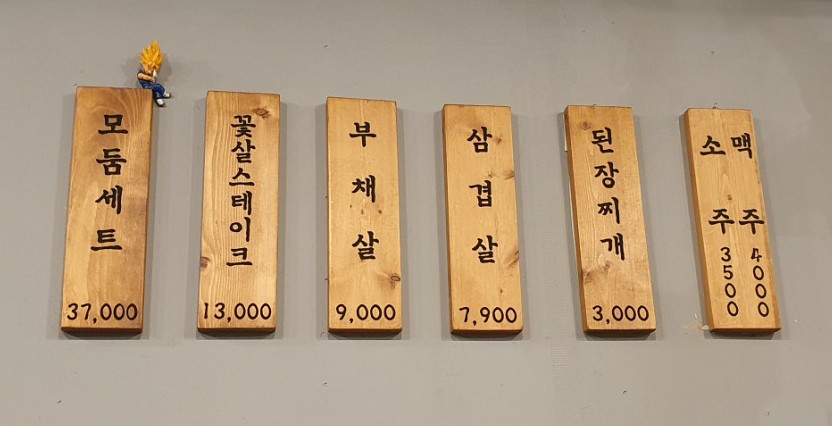 모둠세트
37,000
꽃살스테이크
13,000
부채살
9,000
삼겹살
7,900
된장찌개
3,000
소주
3500
맥주
4000